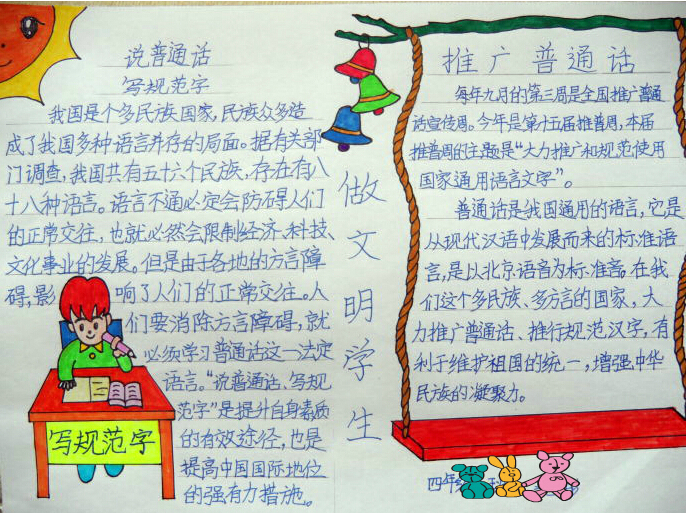 说普通话
写规范字
我国是个多民族国家，民族众多造
成了我国多种语言并存的局面。据有关部
门调查，我国共有五十六个民族，存在有八
十八种语言。语言不通必定会防碍人们
的正常交往，也就必然会限制经济、科技、
文化事业的发展。但是由于各地的方言障
碍，影响了人们的正常交往。人
们要消除方言障碍，就
必须学习普通话这一法定
语言。“说普通话、写规
范字”是提升自身素质
的有效途径，也是
提高中国国际地位
的强有力措施。
写规范字
做文明学生
推广普通话
每年九月的第三周是全国推广普通
话宣传周。今年是第十五届推普周，本届
推普周的主题是“大力推广和规范使用
国家通用语言文字”。
普通话是我国通用的语言，它是
从现代汉语中发展而来的标准语
言，是以北京语音为标准音。在我
们这个多民族、多方言的国家，大
力推广普通话、推行规范汉字，有
利于维护祖国的统一，增强中华
民族的凝聚力。
四年